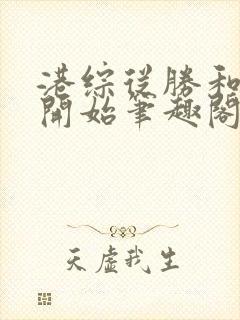 港綜從勝和
開始筆趣閣
天虛我生